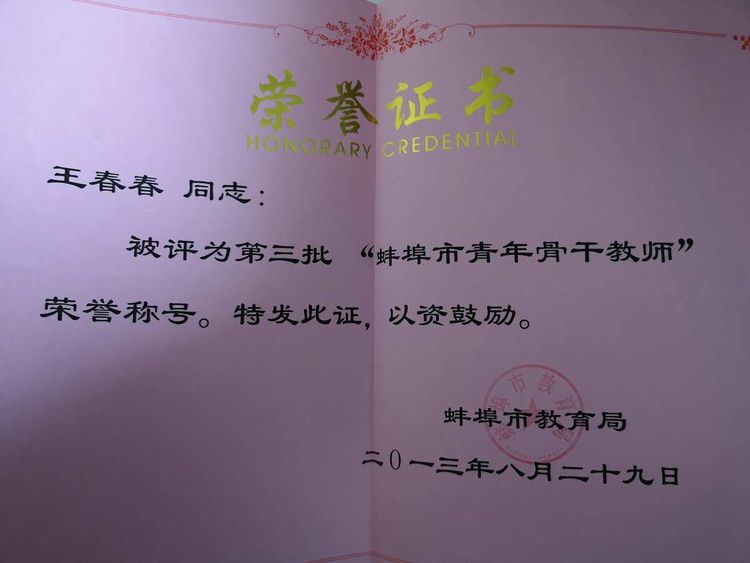 荣誉证书
HONORARY CREDENTIAL
王春春 同志：
被评为第三批 “蚌埠市青年骨干教师”
荣誉称号。特发此证，以资鼓励。
蚌埠市教育局
蚌埠市教育局
二0一三年八月二十九日